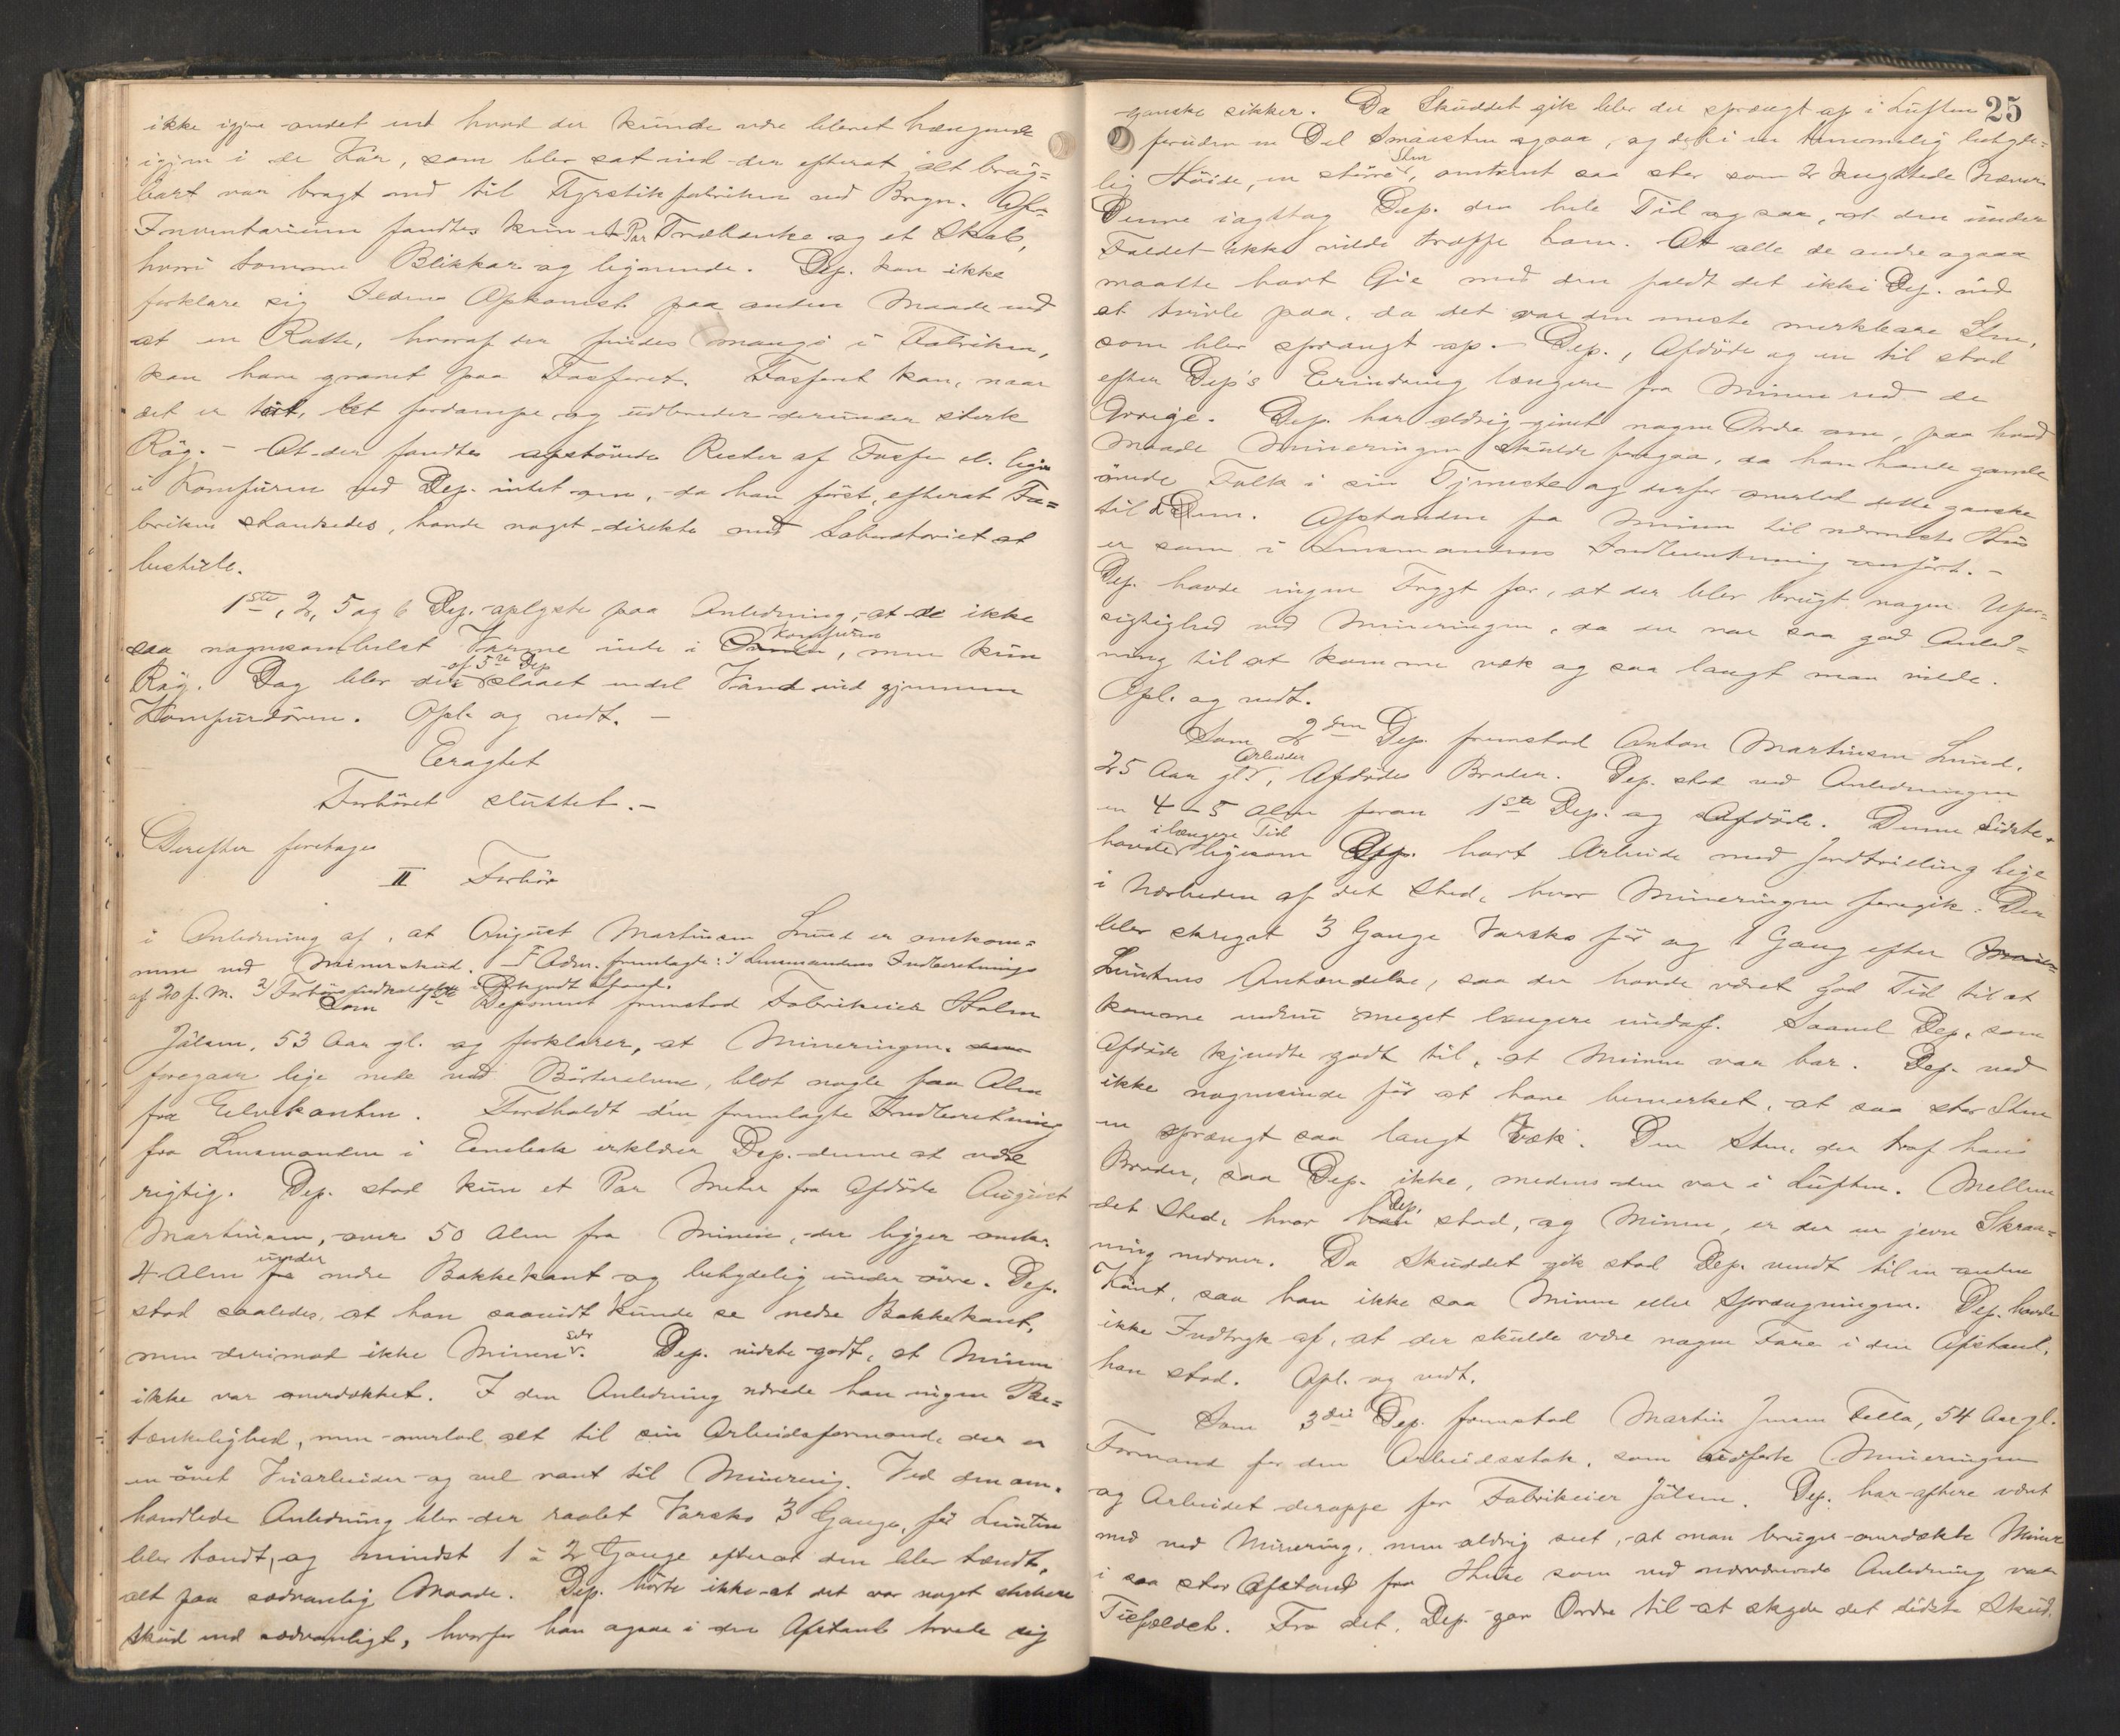 ikke igjen andet end hvad der kunde være blevet hængende
igjen i de Kar, som blev sat ind der efterat alt brug=
bart var bragt ned til Fyrstikfabriken ved Bryn. Af
Inventarium fandtes kun et Par Træbænke og et Skab,
hvori tomme Blikkar og lignende. Dep. kan ikke
forklare sig Ildens Opkomst paa anden Maade end
at en Rotte, hvoraf der findes mange i Fabriken,
kan have gnavet paa Fosforet. Fosforet kan, naar
det er tørt, let fordampe og udbreder derunder sterk
Røg. – At der fandtes størknede Rester af Fosfor el. lign
i Komfuren ved Dep. intet om, da han først, efterat Fa=
briken standsedes, havde noget direkte med Laboratoriet at
bestille.
1ste, 2, 5 og 6 Dep. oplyste paa Anledning, at de ikke
saa nogensomhelst Varme inde i Komfuren, men kun
Røg. Dog blev der af 5te Dep slaaet endel Vand ind gjennem
Komfurdøren. Opl. og vedt. –
Eragtet
Forhøret sluttet. –
Derefter foretages
II Forhør
i Anledning af, at August Martinsen Lund er omkom=
men ved Mineskud. – Adm. fremlagte: 1/ Lensmandens Indberetning
af 20 f. M. 2/
Som 1ste Deponent fremstod Fabrikeier Holm
Jølsen, 53 Aar gl. og forklarer, at Mineringen
foregaar lige nede ved Børterelven, blot nogle faa Alen
fra Elvekanten. Foreholdt den fremlagte Indberetning
fra Lensmanden i Enebak erklærer Dep. denne at være
rigtig. Dep. stod kun et Par Meter fra Afdøde August
Martinsen, over 50 Alen fra Minen, der ligger omtr.
4 Alen under nedre Bakkekant og betydelig under øvre. Dep.
stod saaledes, at han saavidt kunde se nedre Bakkekant,
men derimod ikke Minen selv. Dep. vidste godt, at Minen
ikke var overdækket. I den Anledning nærede han ingen Be=
tænkelighed, men overlod alt til sin Arbeidsformand, der er
en øvet Veiarbeider og vel vant til Minering. Ved den om=
handlede Anledning blev der raabt Varsko 3 Gange, før Lunten
blev tændt, og mindst 1 à 2 Gange efterat den blev tændt,
alt paa sædvanlig Maade. Dep. hørte ikke at det var noget sterkere
Skud end sædvanligt, hvorfor han ogsaa i den Afstand troede sig
25
ganske sikker. Da Skuddet gik blev der sprængt op i Luften
foruden en Del Smaasten ogsaa, og det i en temmelig betyde=
lig Høide, en større Sten, omtrent saa stor som 2 knyttede Næver.
Denne iagttog Dep. den hele Tid og saa, at den under
Faldet ikke vilde træffe ham. At alle de andre ogsaa
maatte havt Øie med den faldt det ikke Dep. ind
at tvivle paa, da det var den meste merkbare Sten,
som blev sprængt op. – Dep., Afdøde og en til stod
efter Dep's Erindring længere fra Minen end de
Øvrige. Dep. har aldrig givet nogen Ordre om, paa hvad
Maade Mineringen skulde foregaa, da han havde gamle
øvede Folk i sin Tjeneste og derfor overlod dette ganske
til Dem. Afstanden fra Minen til nærmeste Hus
er som i Lensmandens Indberetning anført. –
Dep. havde ingen Frygt for, at der blev brugt nogen Ufor=
sigtighed ved Mineringen, da der var saa god Anled=
ning til at komme væk og saa langt man vilde.
Opl. og vedt.
Som 2den Dep. fremstod Anton Martinsen Lund,
25 Aar gl., Arbeider, Afdødes Broder. Dep. stod ved Anledningen
en 4–5 Alen foran 1ste Dep. og Afdøde. Denne Sidste
havde i længere Tid ligesom Dep. havt Arbeide med Jordtrilling lige
i Nærheden af det Sted, hvor Mineringen foregik. Der
blev skreget 3 Gange Varsko før og 1 Gang efter
Luntens Antændelse, saa der havde været god Tid til at
komme endnu meget længere undaf. Saavel Dep. som
Afdøde kjendte godt til, at Minen var bar. Dep. ved
ikke nogensinde før at have bemerket, at saa stor Sten
er sprængt saa langt væk. Den Sten, der traf hans
Broder, saa Dep. ikke, medens den var i Luften. Mellem
det Sted, hvor Dep. stod, og Minen, er der en jevn Skraa=
ning nedover. Da Skuddet gik stod Dep. vendt til en anden
Kant, saa han ikke saa Minen eller Sprængningen. Dep. havde
ikke Indtryk af, at der skulde være nogen Fare i den Afstand,
han stod. Opl. og vedt.
Som 3die Dep. fremstod Martin Jensen Tella, 54 Aar gl.
Formand for den Arbeidsstok, som udførte Mineringen
og Arbeidet deroppe for Fabrikeier Jølsen. Dep. har oftere været
med ved Minering, men aldrig seet, at man bruger overdækte Miner
i saa stor Afstand fra Huse som ved nærværende Anledning var
Tilfældet. Fra det, Dep. gav Ordre til at skyde det sidste Skud,